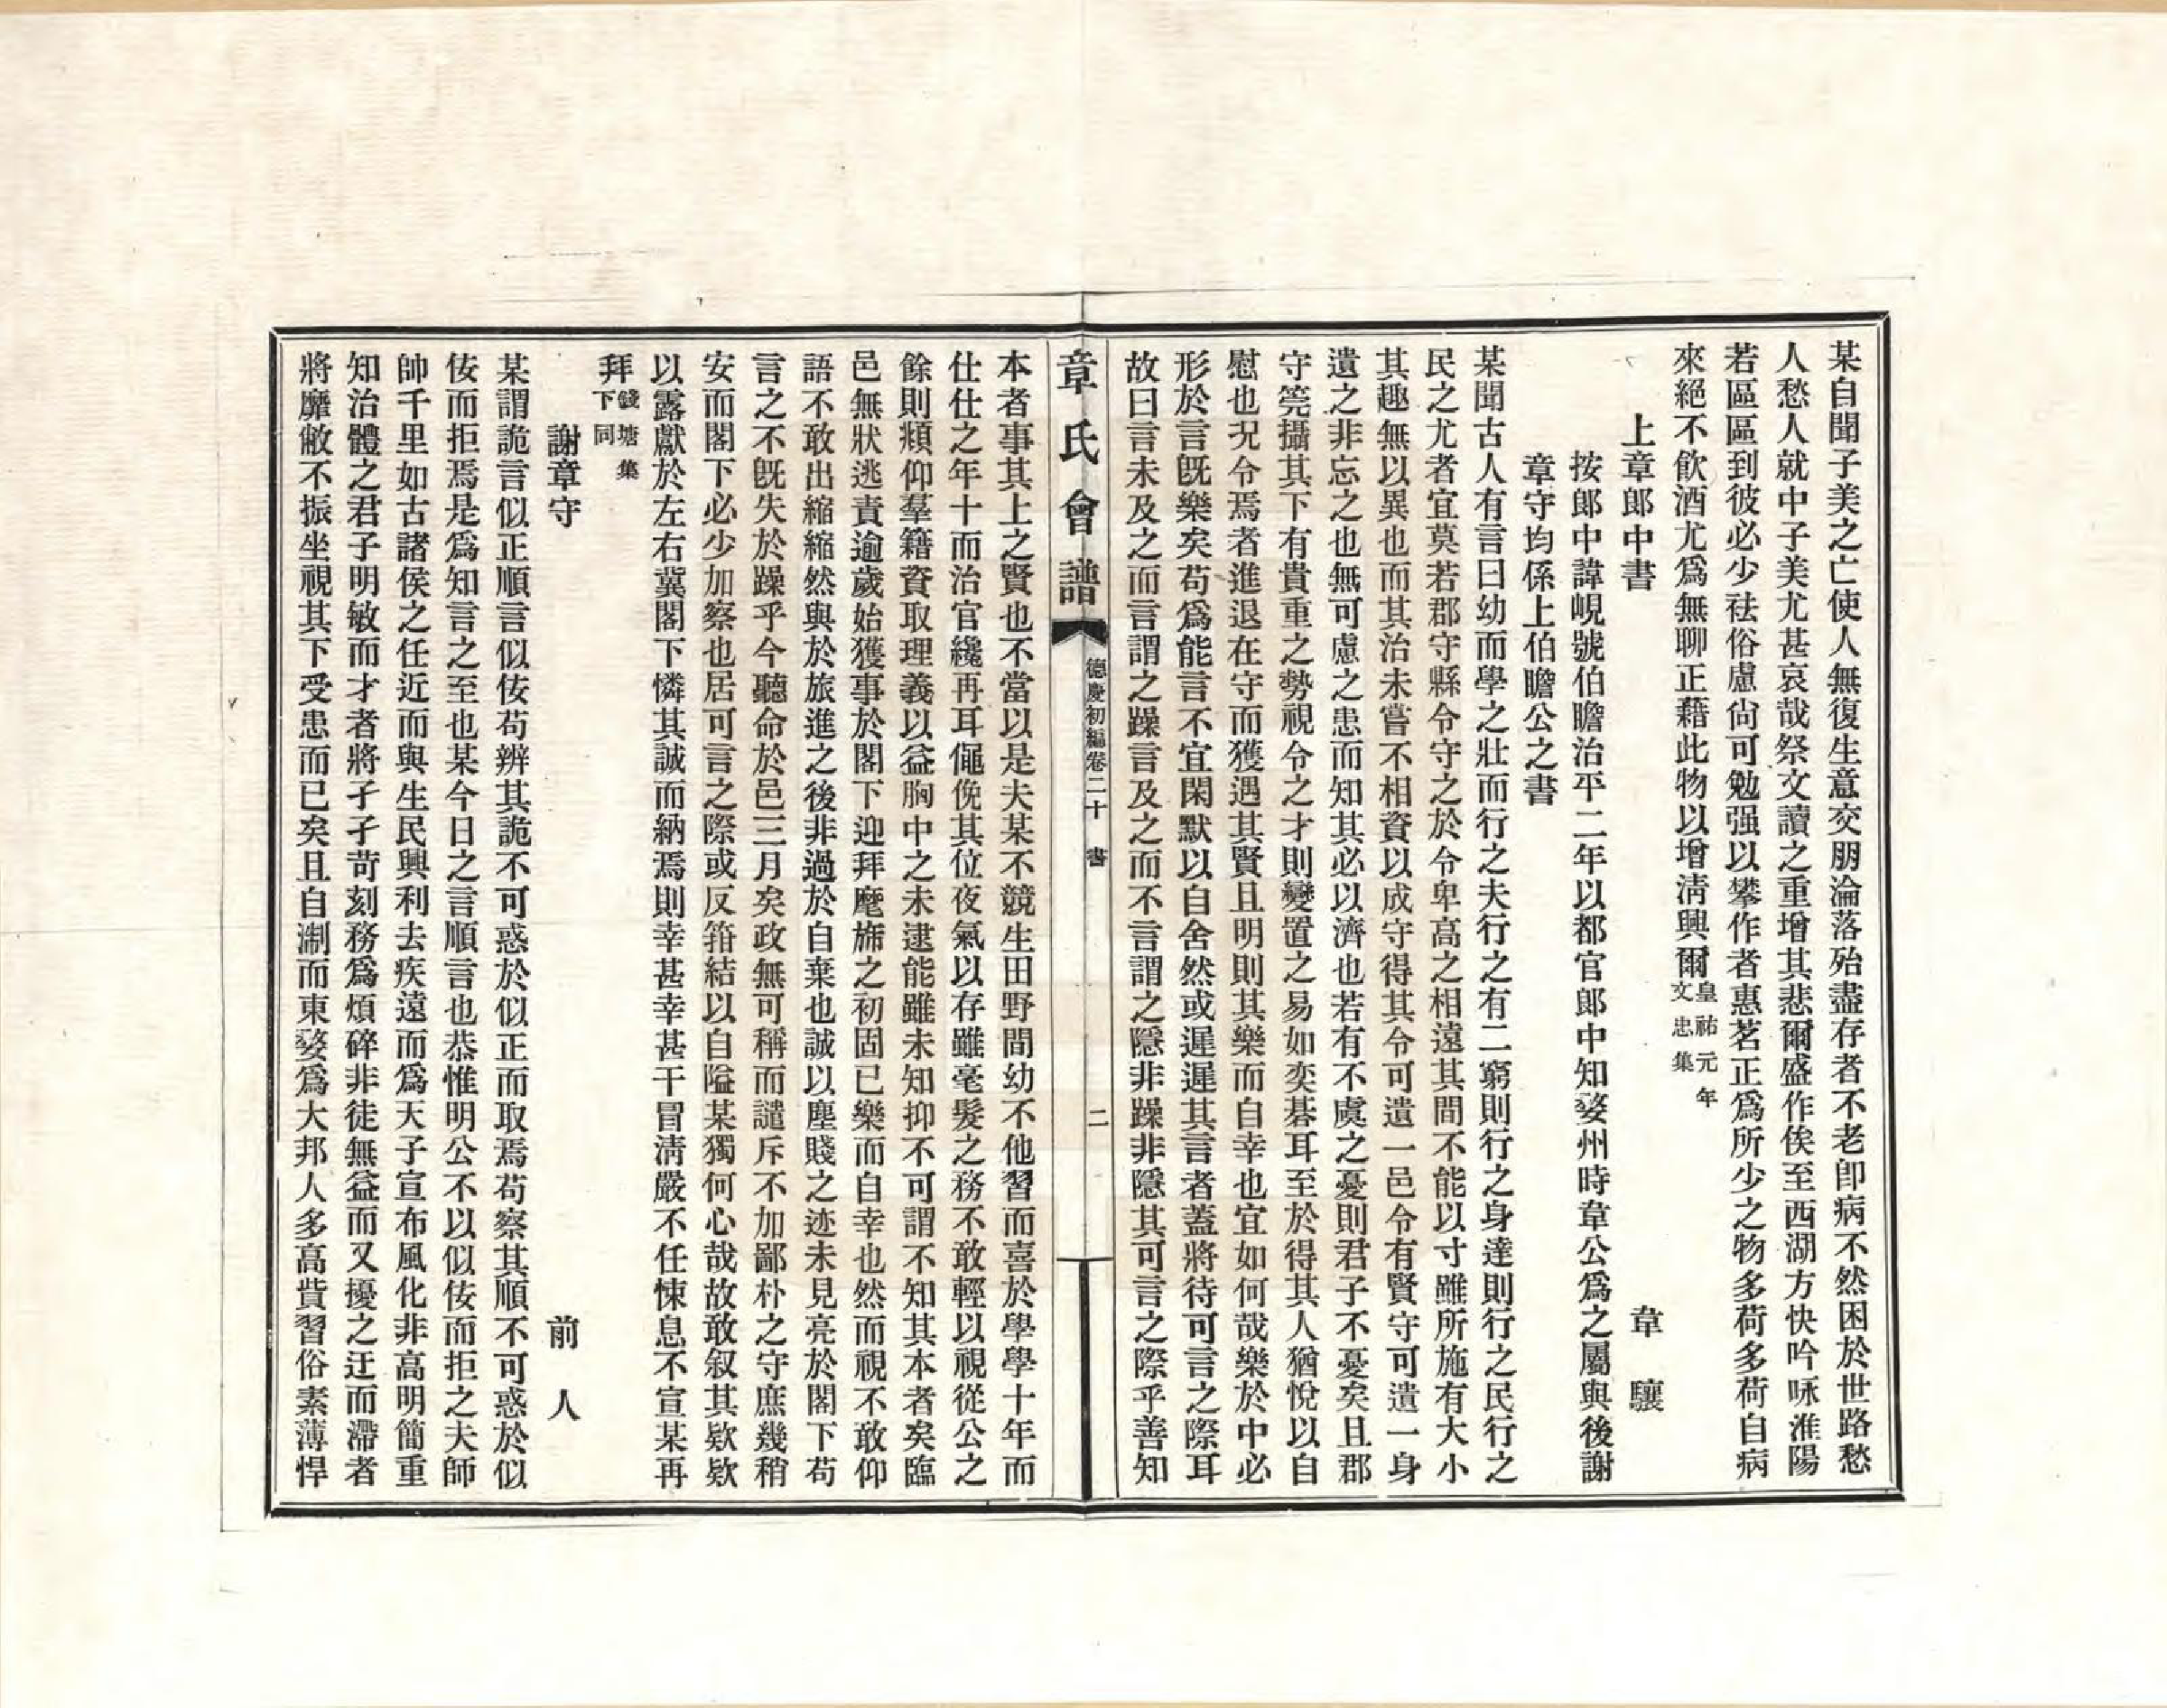 某自聞子美之亡使人無復生意交朋淪落殆盡存者不老卽病不然困於世路愁
人愁人就中子美尤甚哀哉祭文讀之重增其悲爾盛作俟至西湖方快吟咏淮陽
若區區到彼必少祛俗慮尙可勉强以攀作者惠茗正爲所少之物多荷多荷自病
來絕不飮酒尤爲無聊正藉此物以增淸興爾皇祐元年文忠集
上章郞中書　韋驤
按郞中諱峴號伯瞻治平二年以都官郞中知婺州時韋公爲之屬與後謝
章守均係上伯瞻公之書
某聞古人有言曰幼而學之壯而行之夫行之有二窮則行之身達則行之民行之
民之尤者宜莫若郡守縣令守之於令卑高之相遠其間不能以寸雖所施有大小
其趣無以異也而其治未嘗不相資以成守得其令可遺一邑令有賢守可遺一身
遺之非忘之也無可慮之患而知其必以濟也若有不虞之憂則君子不憂矣且郡
守筦攝其下有貴重之勢視令之才則變置之易如奕碁耳至於得其人猶悅以自
慰也况令焉者進退在守而獲遇其賢且明則其樂而自幸也宜如何哉樂於中必
形於言旣樂矣苟爲能言不宜閑默以自舍然或遲遲其言者蓋將待可言之際耳
故曰言未及之而言謂之躁言及之而不言謂之隱非躁非隱其可言之際乎善知
章氏會譜
德慶初編卷二十　書
二
本者事其上之賢也不當以是夫某不競生田野間幼不他習而喜於學學十年而
仕仕之年十而治官纔再耳僶俛其位夜氣以存雖毫髮之務不敢輕以視從公之
餘則頫仰羣籍資取理義以益胸中之未逮能雖未知抑不可謂不知其本者矣臨
邑無狀逃責逾歲始獲事於閣下迎拜麾旆之初固已樂而自幸也然而視不敢仰
語不敢出縮縮然與於旅進之後非過於自棄也誠以塵賤之迹未見亮於閣下苟
言之不旣失於躁乎今聽命於邑三月矣政無可稱而譴斥不加鄙朴之守庶幾稍
安而閣下必少加察也居可言之際或反箝結以自隘某獨何心哉故敢叙其欵欵
以露獻於左右冀閣下憐其誠而納焉則幸甚幸甚干冒淸嚴不任悚息不宣某再
拜錢塘集下同
謝章守　前人
某謂詭言似正順言似佞苟辨其詭不可惑於似正而取焉苟察其順不可惑於似
佞而拒焉是爲知言之至也某今日之言順言也恭惟明公不以似佞而拒之夫師
帥千里如古諸侯之任近而與生民興利去疾遠而爲天子宣布風化非高明簡重
知治體之君子明敏而才者將孑孑苛刻務爲煩碎非徒無益而又擾之迂而滯者
將靡敝不振坐視其下受患而已矣且自淛而東婺爲大邦人多高貲習俗素薄悍